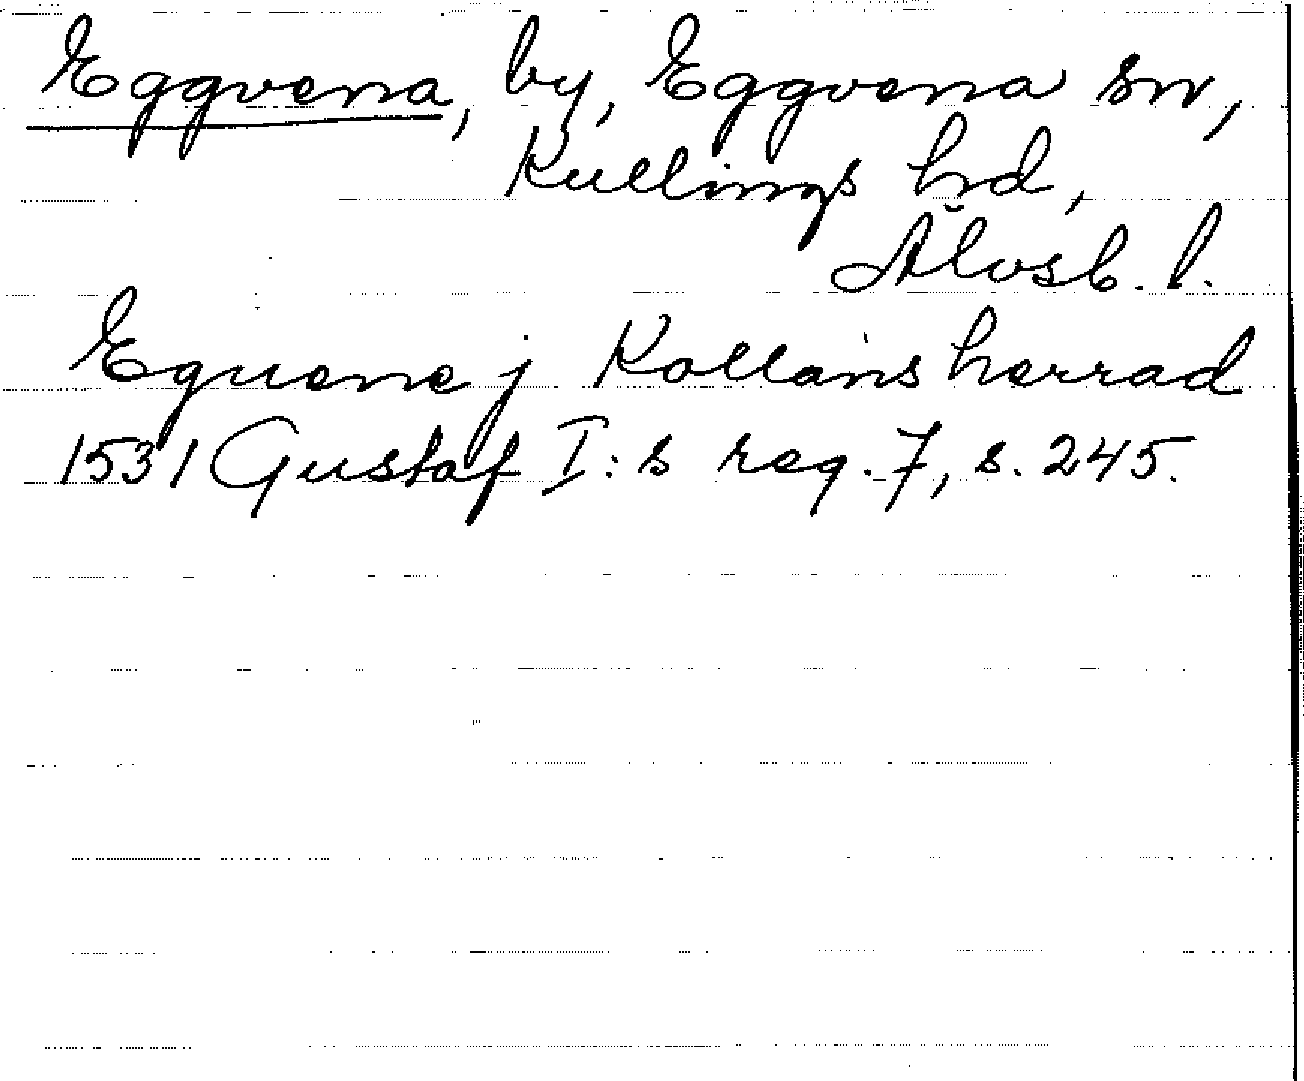 Eggvena, by, Eggvena sn,
Kullings hd,
Älvsb. l.
Eguene j Kollans herrad
1531 Gustaf I:s reg. 7, s. 245.